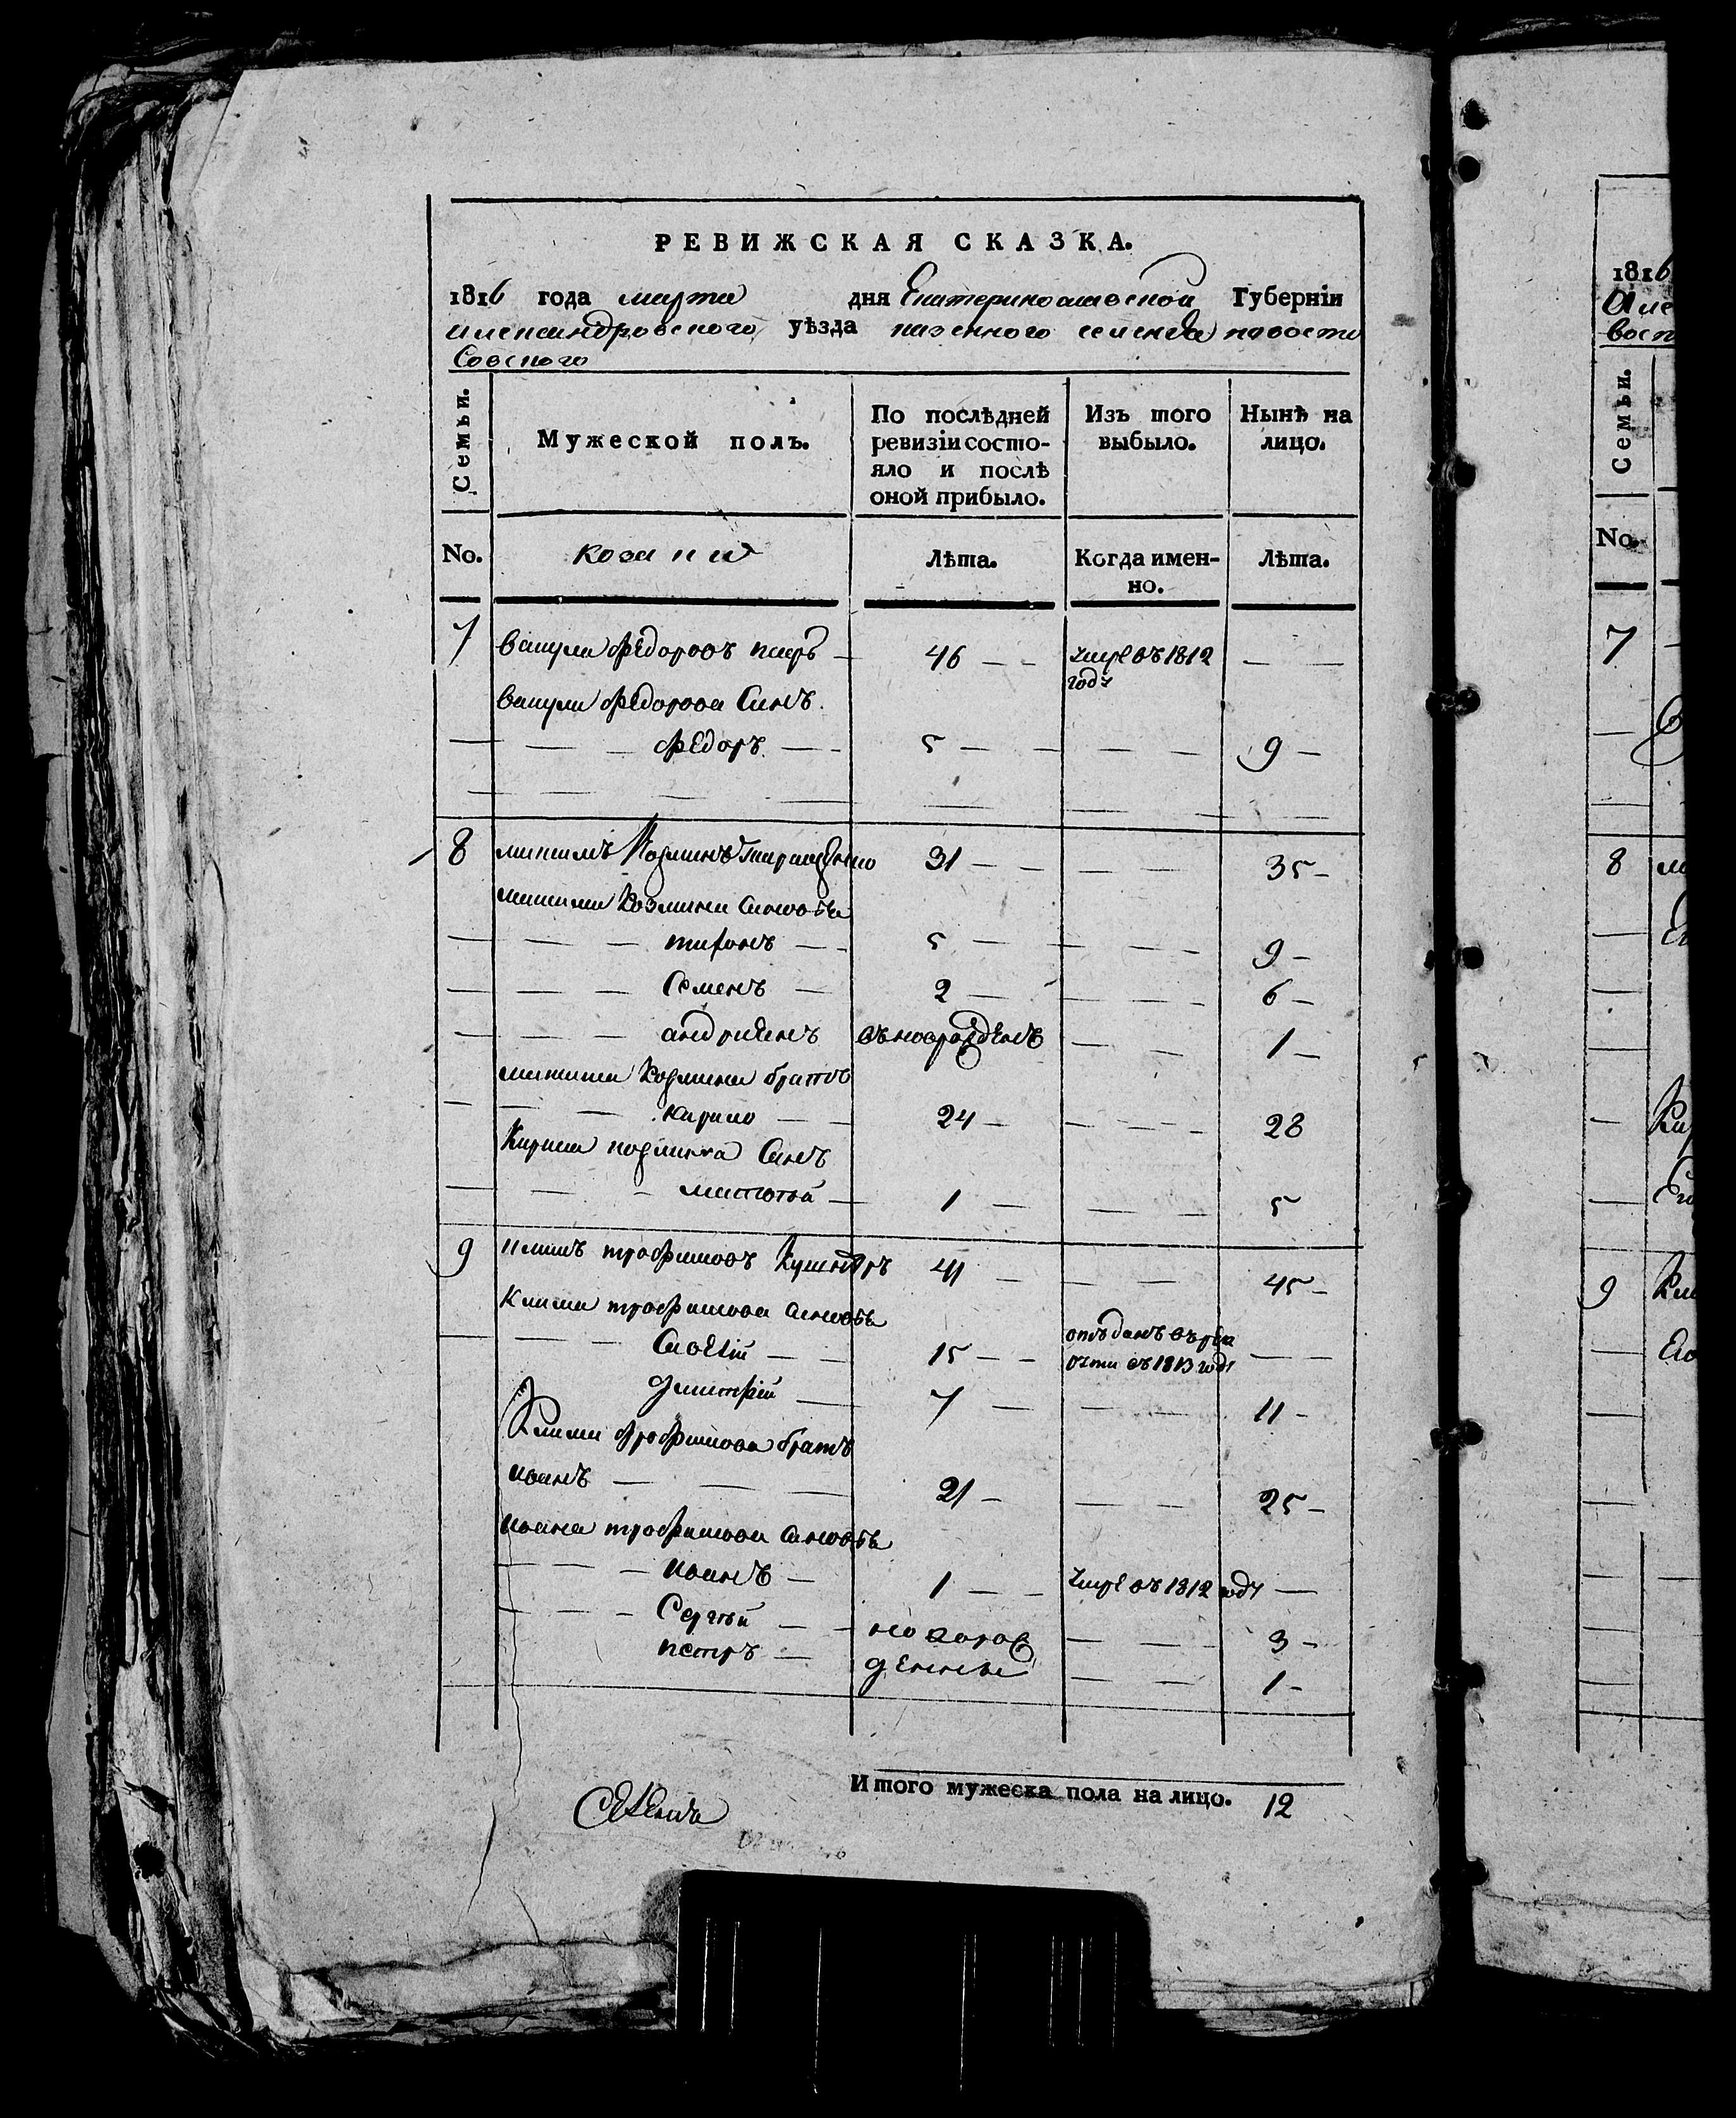 РЕВИЖСКАЯ СКАЗКА.
1816 года марта дня Екатеринославской Губерніи
Александровского уѣзда казенного селенѣя новости
Совского
Семьи.
Мужеской полъ.
По послѣдней
ревизіи состо-
яло и послѣ
оной прибыло.
Изъ того
выбыло.
Нынѣ на
лицо.
No.
козаки
Лѣта.
Когда имен-
но.
Лѣта.
7 вакула федоровъ 46 умре въ 1812
году
вакули федорова Синъ
федоръ 5 9
8 максимъ Козминъ 31 35
максима Козмина Синовья
тифонъ 5 9
Семенъ 2 6
андриенъ 1
максима Козмина братъ
кирило 24 28
Кирила козмина Синъ
матвѣй 1 5
9 климъ трофимовъ 41 45
Клима трофимова Синовья
Савелій 15 отъданъ въ рек
въ 1813 году
дмитрій 7 11
Клима трофимова братъ
иванъ 21 25
ивана трофимова Синовья
иванъ 1 умре въ 1812 году
Сергѣй новорож 3
петръ денны 1
Итого мужеска пола на лицо. 12
1816
Але
Семьи.
No.
7
8
9